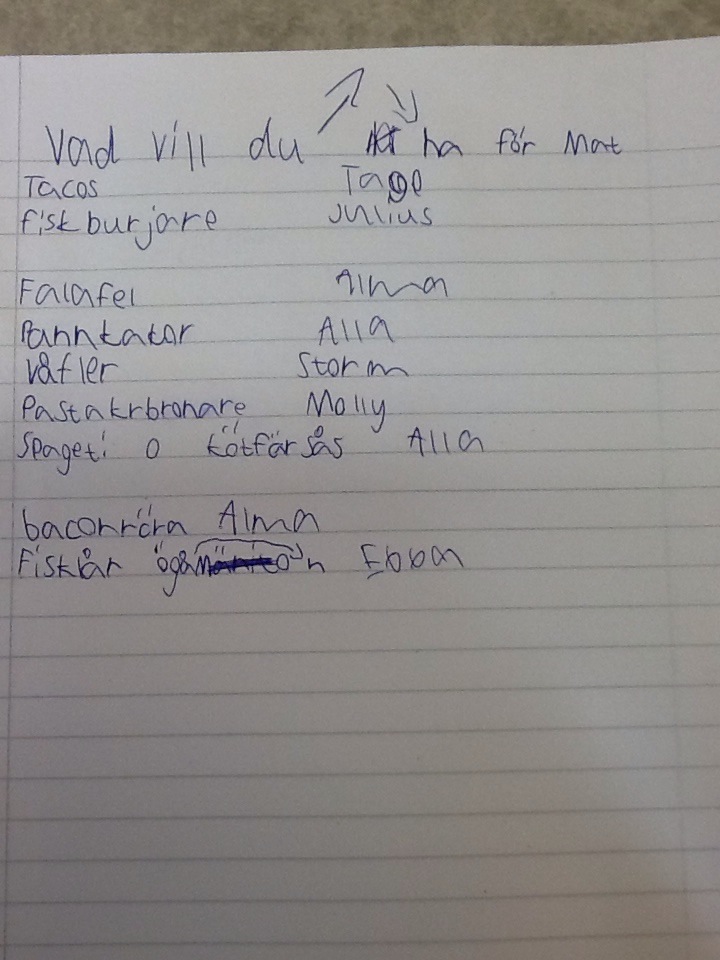 Vad vill du ha för Mat
Tacos Tage
fiskburjare Julius
Falafel Alma
Pannkakor Alla
Våfler Storm
Pastakrbronare Molly
Spageti o kötfärsås Alla
baconröra Alma
Fisk Ebba